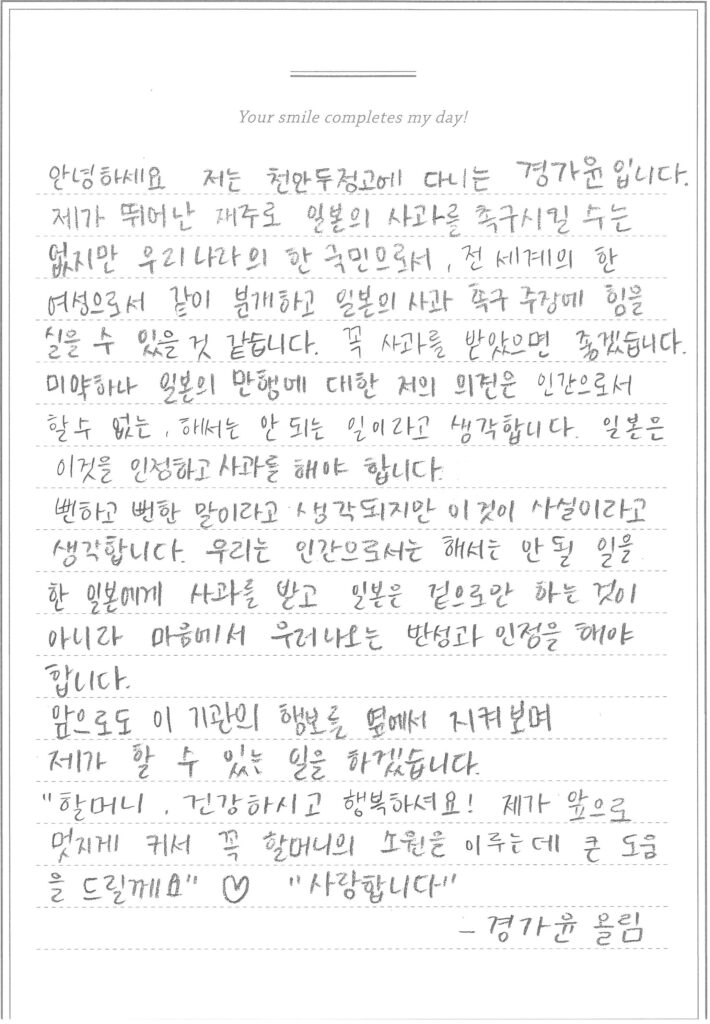 Your smile completes my day!
안녕하세요 저는 천안두정고에 다니는 경가윤입니다.
제가 뛰어난 재주로 일본의 사과를 촉구시킬 수는
없지만 우리나라의 한 국민으로서, 전 세계의 한
여성으로서 같이 분개하고 일본의 사과 촉구 주장에 힘을
실을 수 있을것 같습니다. 꼭 사과를 받았으면 좋겠습니다.
미약하나 일본의 만행에 대한 저의 의견은 인간으로서
할수 없는, 해서는 안 되는 일이라고 생각합니다. 일본은
이것을 인정하고 사과를 해야 합니다.
뻔하고 뻔한 말이라고 생각되지만 이것이 사실이라고
생각합니다. 우리는 인간으로서는 해서는 안 될 일을
한 일본에게 사과를 받고 일본은 겉으로만 하는 것이
아니라 마음에서 우러나오는 반성과 인정을 해야
합니다.
앞으로도 이 기관의 행보를 옆에서 지켜보며
제가 할 수 있는 일을 하겠습니다.
"할머니, 건강하시고 행복하셔요! 제가 앞으로
멋지게 커서 꼭 할머니의 소원을 이루는데 큰 도움
을 드릴께요" ♡ "사랑합니다"
- 경가윤 올림